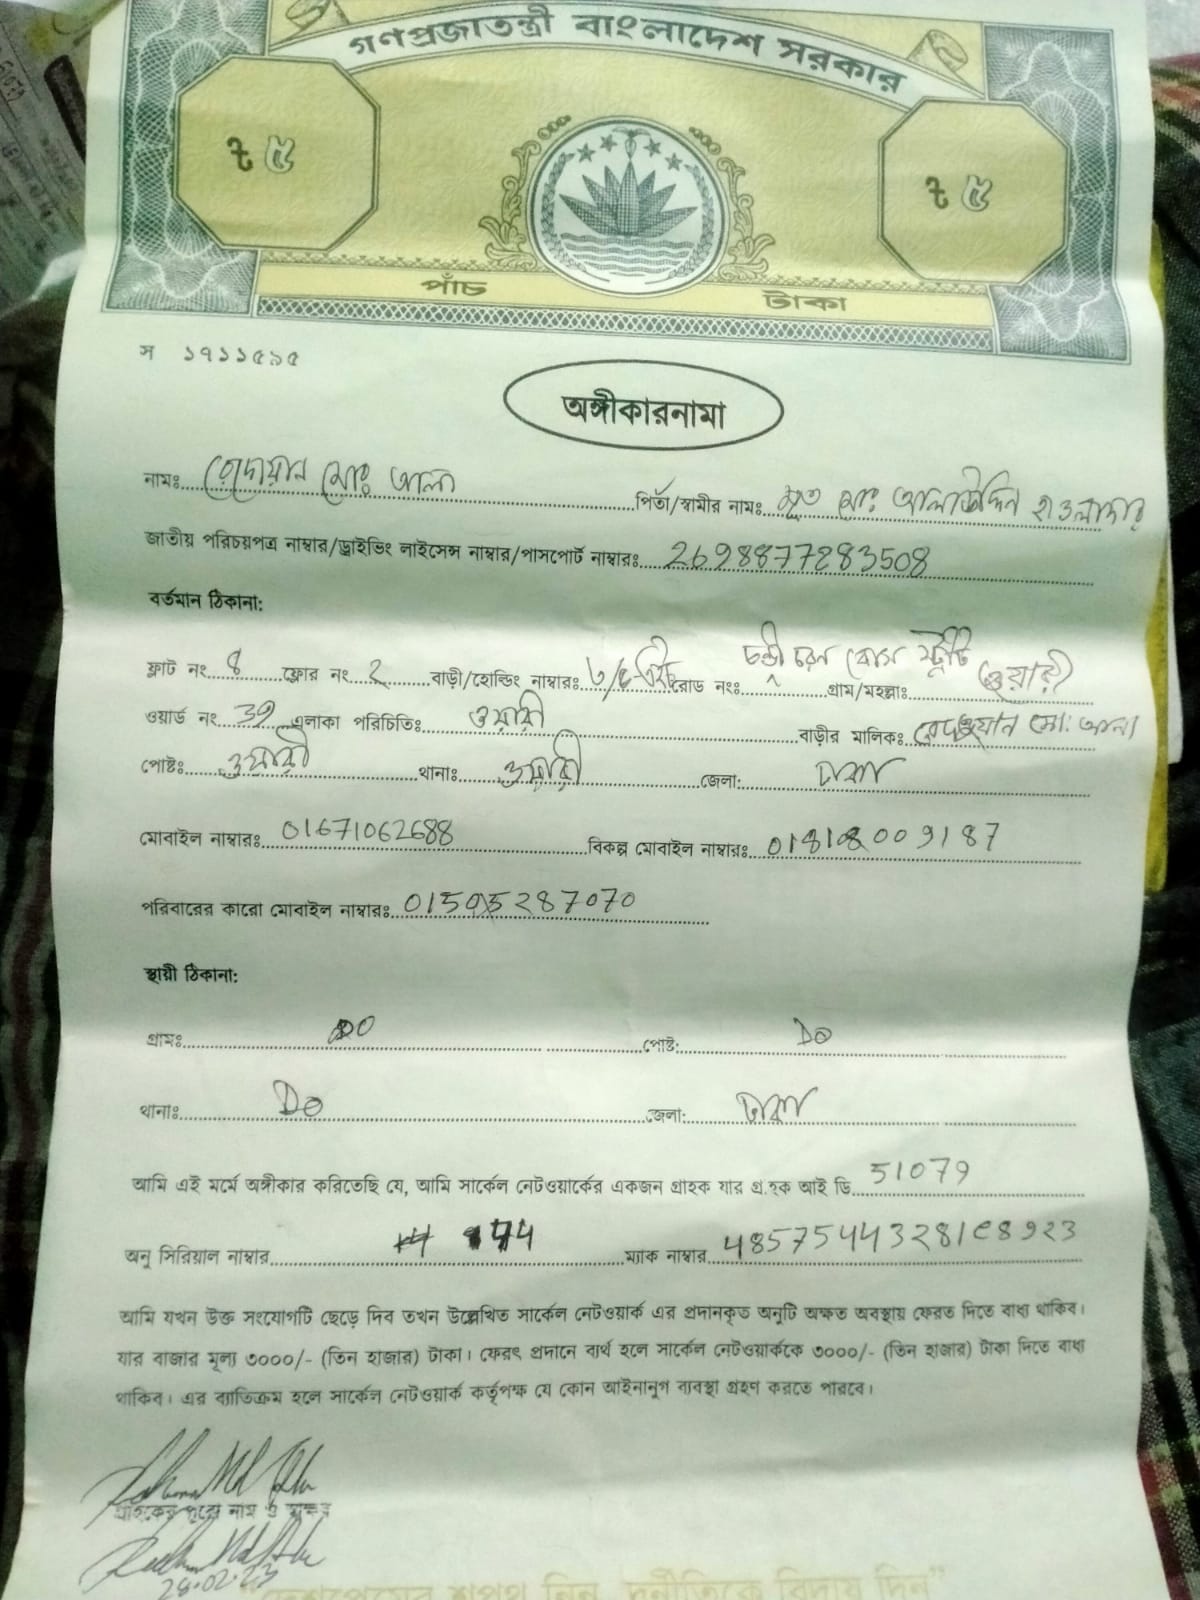 গণপ্রজাতন্ত্রী বাংলাদেশ সরকার
৳ ৫
৳ ৫
পাঁচ টাকা
স ১৭১১৫৯৫
অঙ্গীকারনামা
নামঃ রেদোয়ান মোঃ আলা পিতা/স্বামীর নামঃ মৃত মোঃ আলাউদ্দিন হাওলাদার
জাতীয় পরিচয়পত্র নাম্বার/ড্রাইভিং লাইসেন্স নাম্বার/পাসপোর্ট নাম্বারঃ 2698877283508
বর্তমান ঠিকানা:
ফ্লাট নং 8 ফ্লোর নং 2 বাড়ী/হোল্ডিং নাম্বারঃ রোড নংঃ চন্ডী চরন বোস স্ট্রীট গ্রাম/মহল্লাঃ ওয়ারী
ওয়ার্ড নং 39 এলাকা পরিচিতি: ওয়ারী বাড়ীর মালিকঃ রেদওয়ান মো: আলা
পোষ্টঃ ওয়ারী থানাঃ ওয়ারী জেলা: ঢাকা
মোবাইল নাম্বারঃ 01671062688 বিকল্প মোবাইল নাম্বারঃ
পরিবারের কারো মোবাইল নাম্বারঃ
স্থায়ী ঠিকানা:
গ্রামঃ DO পোষ্ট: DO
থানাঃ DO জেলা: ঢাকা
আমি এই মর্মে অঙ্গীকার করিতেছি যে, আমি সার্কেল নেটওয়ার্কের একজন গ্রাহক যার গ্রাহক আই ডি 51079
অনু সিরিয়াল নাম্বার ম্যাক নাম্বার 485754443281E8923
আমি যখন উক্ত সংযোগটি ছেড়ে দিব তখন উল্লেখিত সার্কেল নেটওয়ার্ক এর প্রদানকৃত অনুটি অক্ষত অবস্থায় ফেরত দিতে বাধ্য থাকিব।
যার বাজার মূল্য ৩০০০/- (তিন হাজার) টাকা। ফেরৎ প্রদানে ব্যর্থ হলে সার্কেল নেটওয়ার্ককে ৩০০০/- (তিন হাজার) টাকা দিতে বাধ্য
থাকিব। এর ব্যাতিক্রম হলে সার্কেল নেটওয়ার্ক কর্তৃপক্ষ যে কোন আইনানুগ ব্যবস্থা গ্রহণ করতে পারবে।
গ্রাহকের পুরো নাম ও স্বাক্ষর
28.02.23
"দেশপ্রেমের শপথ নিন, দুর্নীতিকে বিদায় দিন"